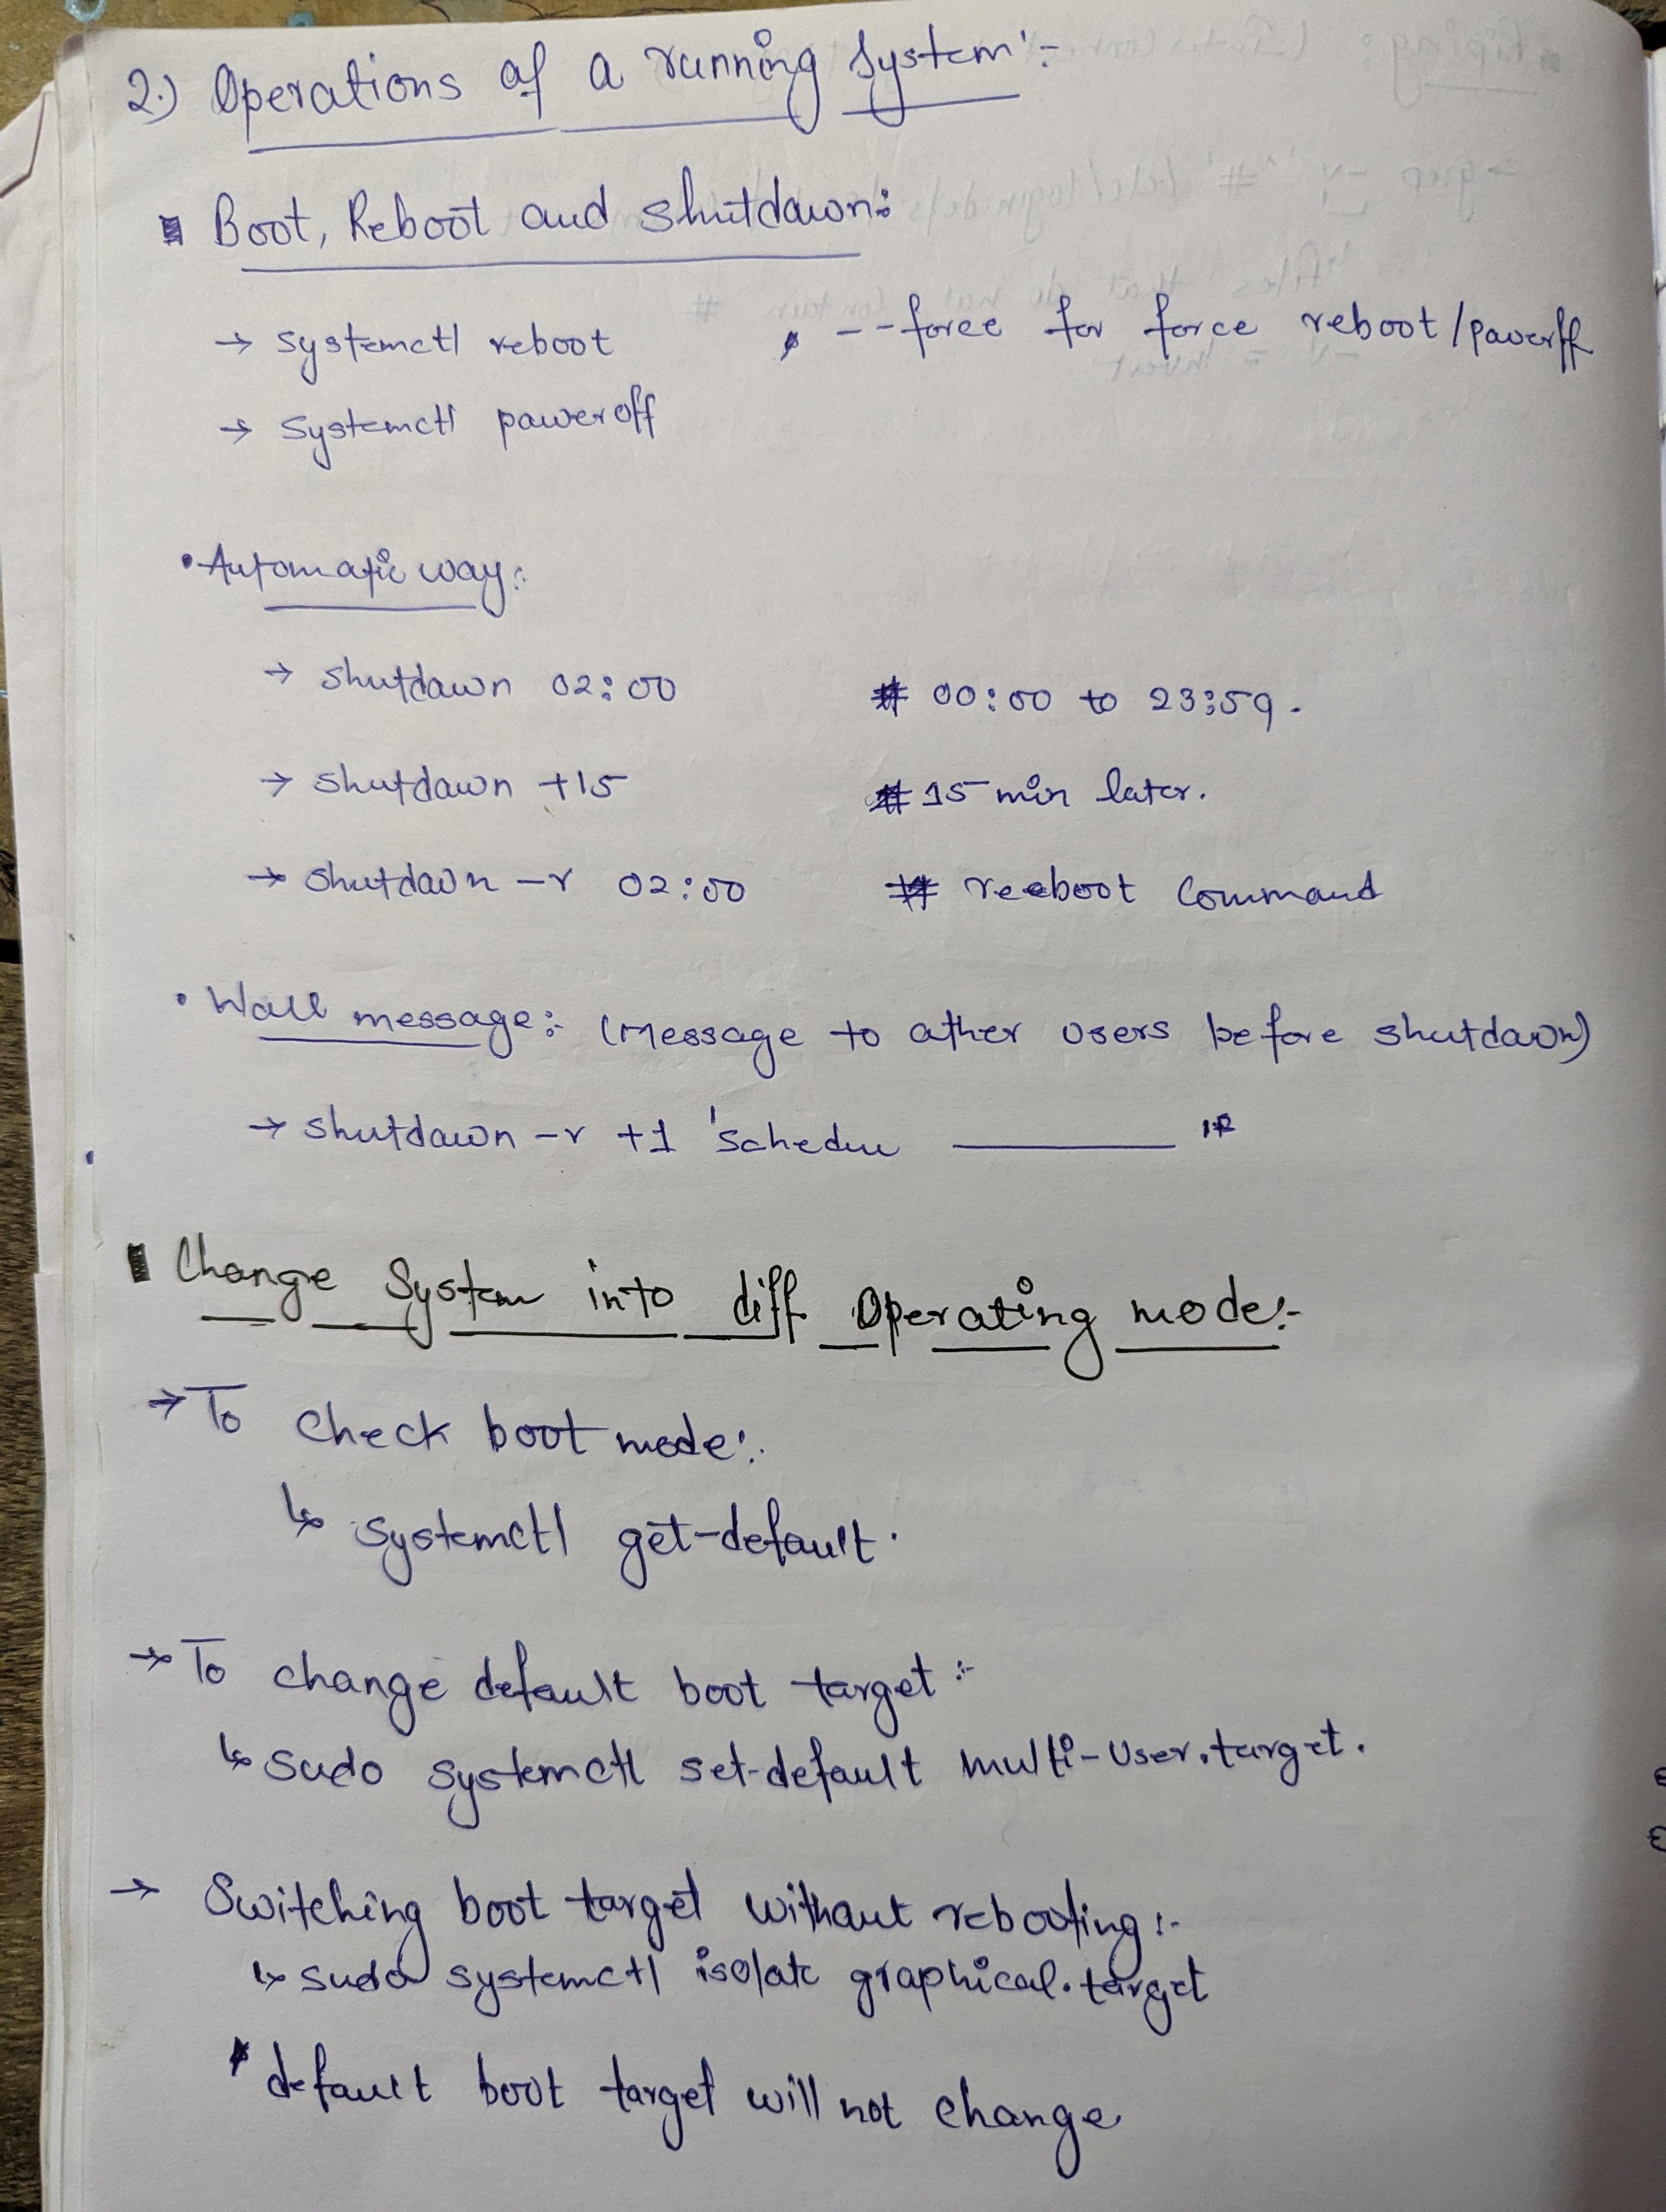 2.) Operations of a running System:-
Boot, Reboot and shutdown:
→ systemctl reboot
--force for force reboot/poweroff
→ systemctl poweroff
• Automatic way:
→ shutdown 02:00 # 00:00 to 23:59.
→ shutdown +15 # 15 min later.
→ shutdown -r 02:00 # reeboot Command
• Wall message:- (Message to other users before shutdown)
→ shutdown -r +1 'schedule ________ '
Change System into diff Operating mode:-
→ To check boot mode:
↳ systemctl get-default.
→ To change default boot target:-
↳ sudo systemctl set-default multi-user.target.
→ Switching boot target without rebooting:-
↳ sudo systemctl isolate graphical.target
* default boot target will not change